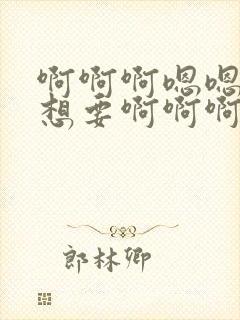 啊啊啊嗯嗯
想要啊啊啊
郎林卿